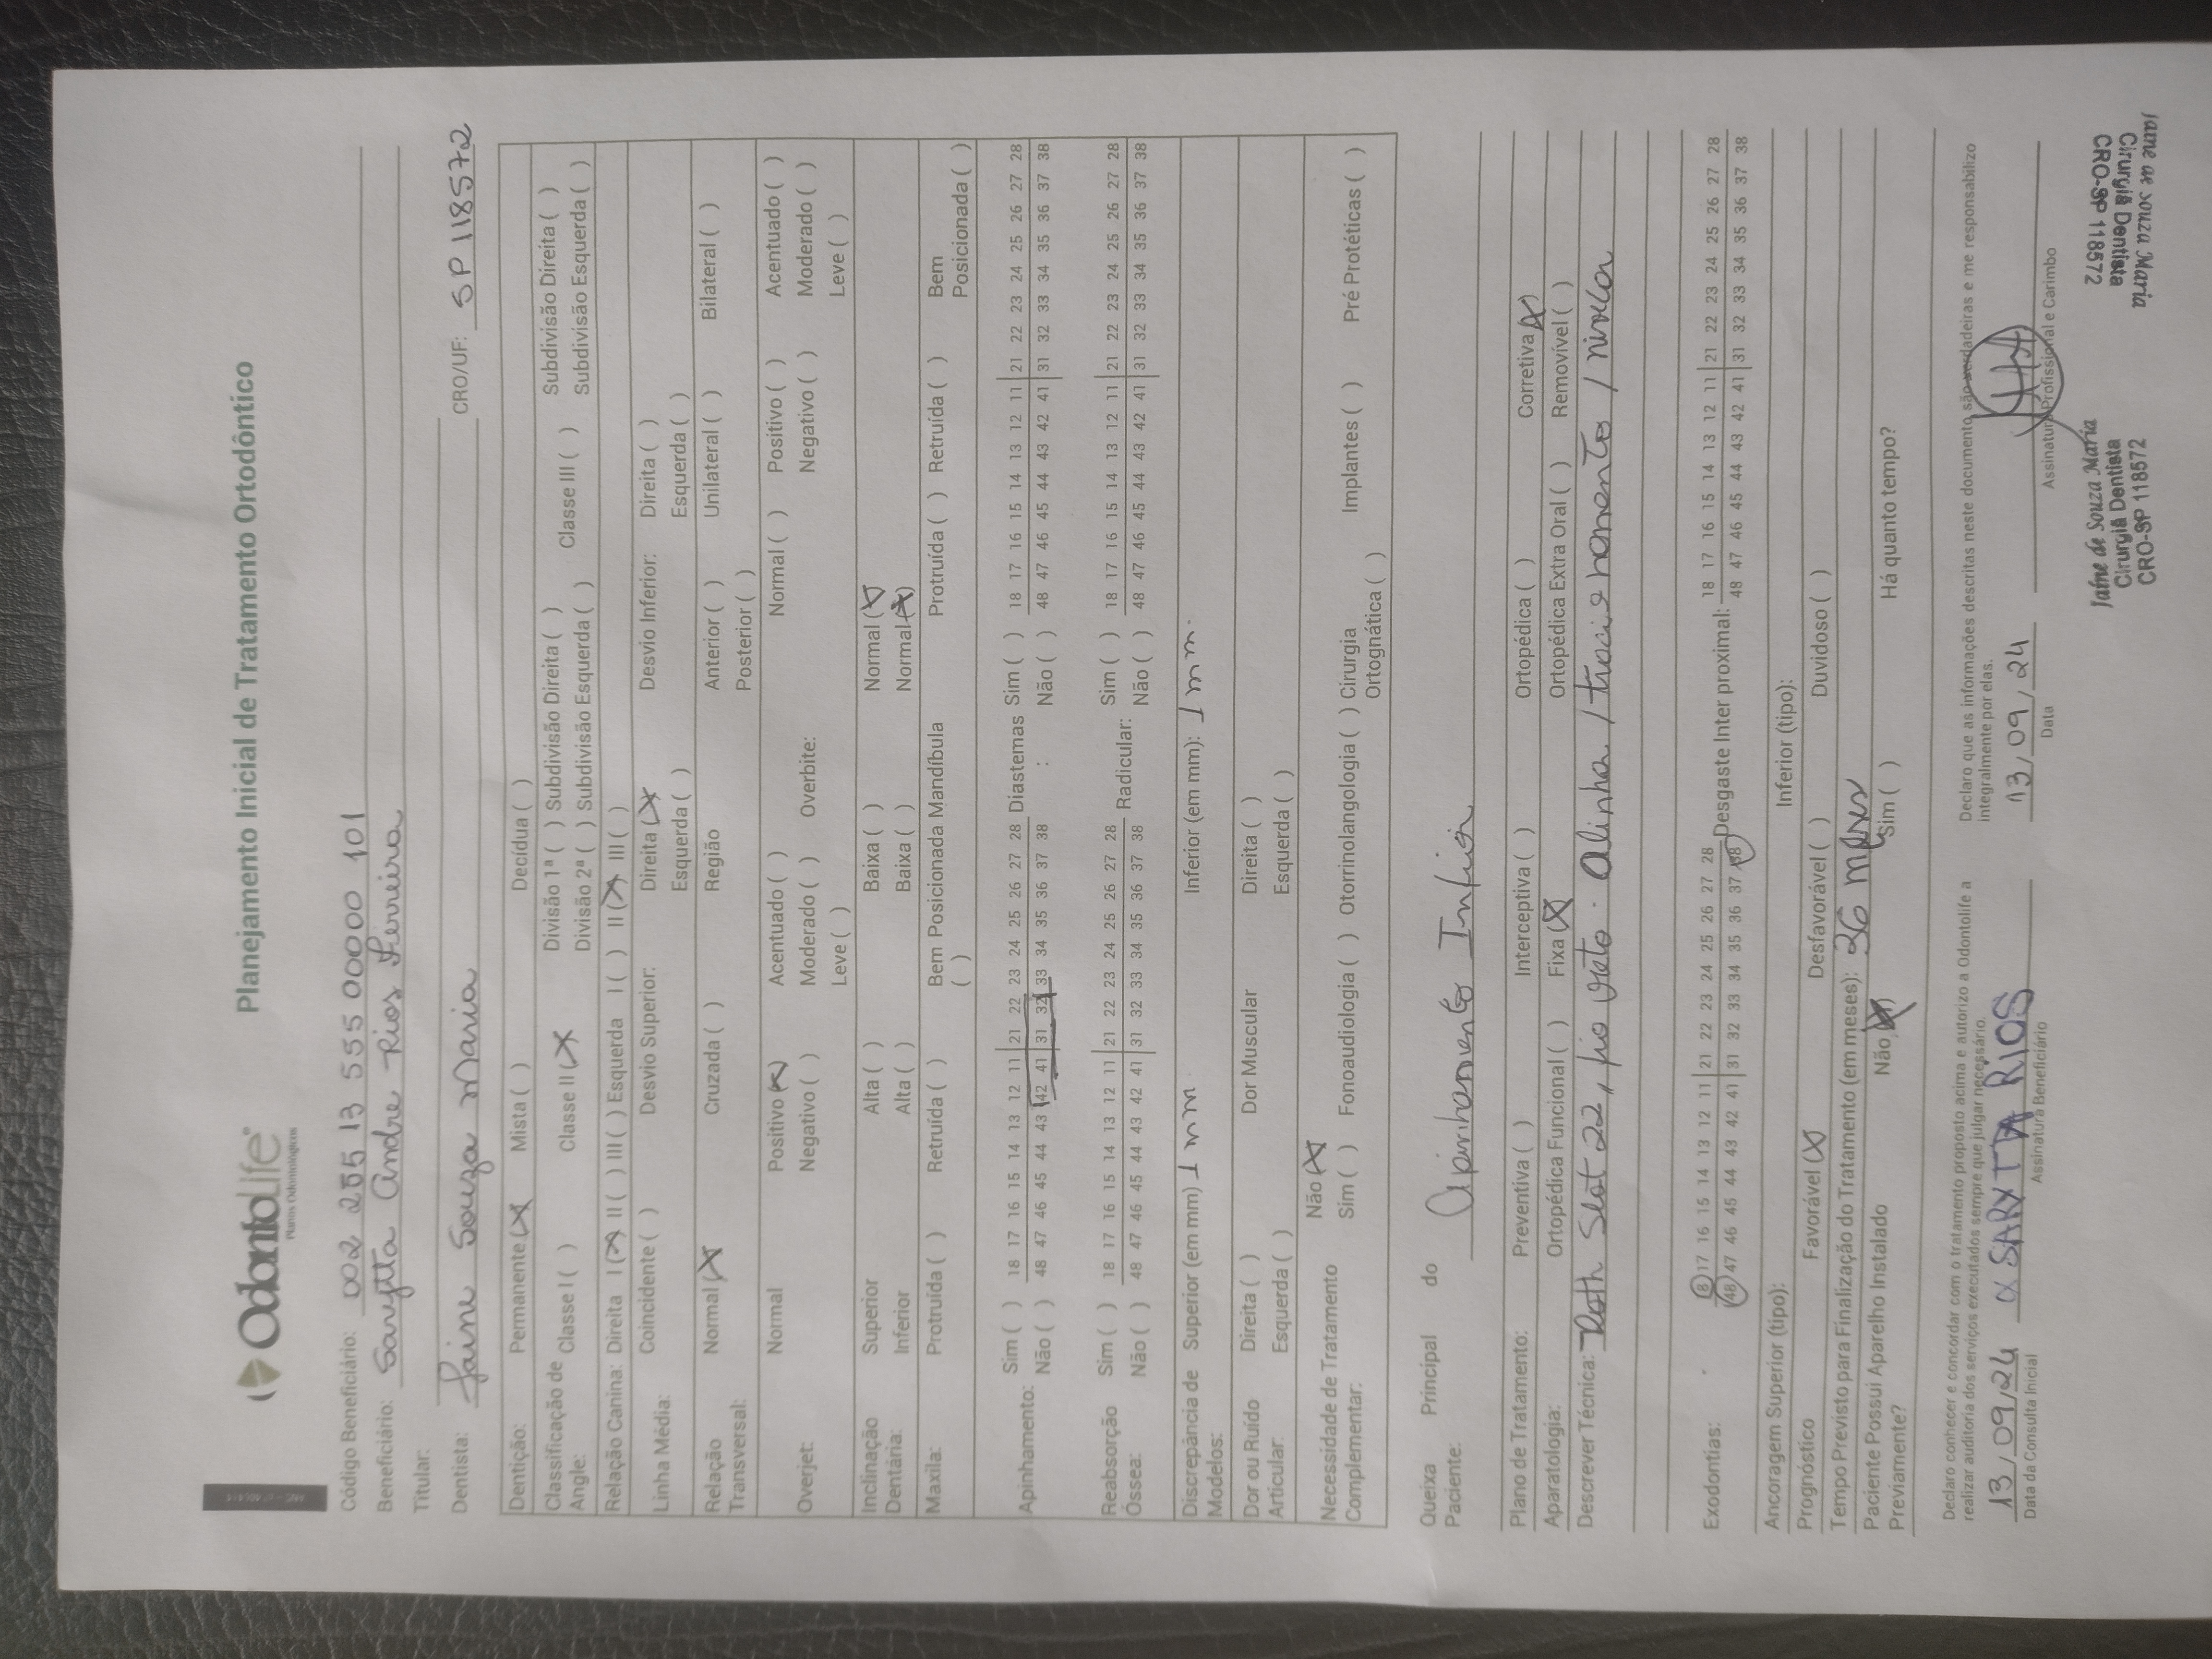 OdontoLife®
Planos Odontológicos
Planejamento Inicial de Tratamento Ortodôntico
Código Beneficiário: 002 285 13 555 00000 101
Beneficiário: Sarytta Andre Rios Ferreira
Titular:
Dentista: Jaine Souza Maria CRO/UF: SP 118572
Dentição: Permanente (X) Mista ( ) Decídua ( )
Classificação de Angle: Classe I ( ) Classe II (X) Divisão 1ª ( ) Subdivisão Direita ( ) Classe III ( ) Subdivisão Direita ( )
Divisão 2ª ( ) Subdivisão Esquerda ( ) Subdivisão Esquerda ( )
Relação Canina: Direita I (X) II ( ) III ( ) Esquerda I ( ) II (X) III ( )
Linha Média: Coincidente ( ) Desvio Superior: Direita (X) Desvio Inferior: Direita ( )
Esquerda ( ) Esquerda ( )
Relação Transversal: Normal (X) Cruzada ( ) Região Anterior ( ) Unilateral ( ) Bilateral ( )
Posterior ( )
Normal Positivo (X) Acentuado ( ) Normal ( ) Positivo ( ) Acentuado ( )
Overjet: Negativo ( ) Moderado ( ) Overbite: Negativo ( ) Moderado ( )
Leve ( ) Leve ( )
Inclinação Superior Alta ( ) Baixa ( ) Normal (X)
Dentária: Inferior Alta ( ) Baixa ( ) Normal (X)
Maxila: Protruída ( ) Retruída ( ) Bem Posicionada ( ) Mandíbula Protruída ( ) Retruída ( ) Bem Posicionada ( )
Apinhamento: Sim ( ) 18 17 16 15 14 13 12 11 21 22 23 24 25 26 27 28 Diastemas : Sim ( ) 18 17 16 15 14 13 12 11 21 22 23 24 25 26 27 28
Não ( ) 48 47 46 45 44 43 42 41 31 32 33 34 35 36 37 38 Não ( ) 48 47 46 45 44 43 42 41 31 32 33 34 35 36 37 38
Reabsorção Óssea: Sim ( ) 18 17 16 15 14 13 12 11 21 22 23 24 25 26 27 28 Radicular: Sim ( ) 18 17 16 15 14 13 12 11 21 22 23 24 25 26 27 28
Não ( ) 48 47 46 45 44 43 42 41 31 32 33 34 35 36 37 38 Não ( ) 48 47 46 45 44 43 42 41 31 32 33 34 35 36 37 38
Discrepância de Modelos: Superior (em mm) 1 mm Inferior (em mm): 1 mm.
Dor ou Ruído Articular: Direita ( ) Dor Muscular Direita ( )
Esquerda ( ) Esquerda ( )
Necessidade de Tratamento Complementar: Não (X)
Sim ( ) Fonoaudiologia ( ) Otorrinolangologia ( ) Cirurgia Ortognática ( ) Implantes ( ) Pré Protéticas ( )
Queixa Principal do Paciente: Apinhamento Inferior
Plano de Tratamento: Preventiva ( ) Interceptiva ( ) Ortopédica ( ) Corretiva (X)
Aparatologia: Ortopédica Funcional ( ) Fixa (X) Ortopédica Extra Oral ( ) Removível ( )
Descrever Técnica: Roth Slot 22, fio reto. alinha / / nivelar
Exodontias: 8 17 16 15 14 13 12 11 21 22 23 24 25 26 27 28 Desgaste Inter proximal: 18 17 16 15 14 13 12 11 21 22 23 24 25 26 27 28
48 47 46 45 44 43 42 41 31 32 33 34 35 36 37 38 48 47 46 45 44 43 42 41 31 32 33 34 35 36 37 38
Ancoragem Superior (tipo): Inferior (tipo):
Prognóstico Favorável (X) Desfavorável ( ) Duvidoso ( )
Tempo Previsto para Finalização do Tratamento (em meses): 36 meses
Paciente Possui Aparelho Instalado Previamente? Não (X) Sim ( ) Há quanto tempo?
Declaro conhecer e concordar com o tratamento proposto acima e autorizo a Odontolife a
realizar auditoria dos serviços executados sempre que julgar necessário.
Declaro que as informações descritas neste documento são verdadeiras e me responsabilizo
integralmente por elas.
13/09/24 SARYTTA RIOS 13/09/24
Data da Consulta Inicial Assinatura Beneficiário Data Assinatura Profissional e Carimbo
Jaine de Souza Maria
Cirurgiã Dentista
CRO-SP 118572
Jaine de Souza Maria
Cirurgiã Dentista
CRO-SP 118572